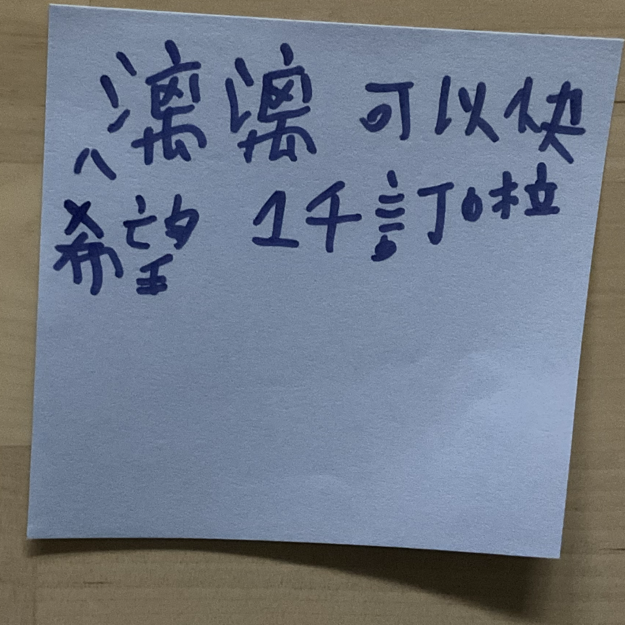 漓漓 可以快
希望 1千訂啦